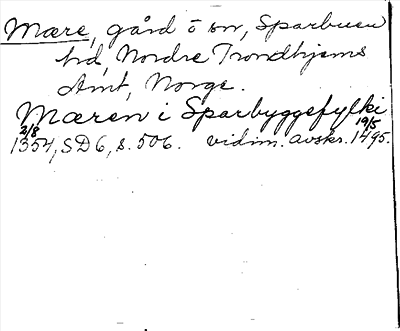 Mære, gård o sn, Sparbuen
hd, Nordre Trondhjems
Amt, Norge.
Mæren i Sparbyggefylki
2/8 1354, SD 6, s. 506. vidim. avskr. 19/5 1495.